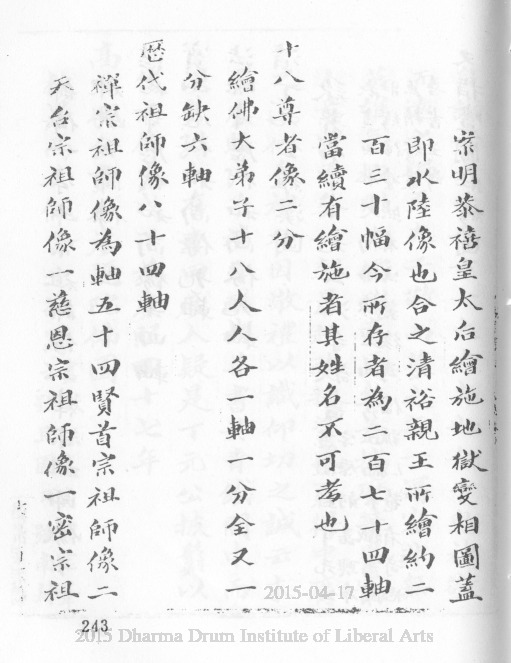 案明恭禧皇太后繪施地獄變相圖蓋
即水陸像也合之清裕親王所繪約二
百三十幅今所存者為二百七十四軸
當續有繪施者其姓名不可考也
十八尊者像二分
繪佛大弟子十八人人各一軸一分全又一
分缺六軸
歷代祖師像八十四軸
禪宗祖師像為軸五十四賢首宗祖師像二
天台宗祖師像一慈恩宗祖師像一密宗祖
2015-04-17
243
2015 Dharma Drum Institute of Liberal Arts